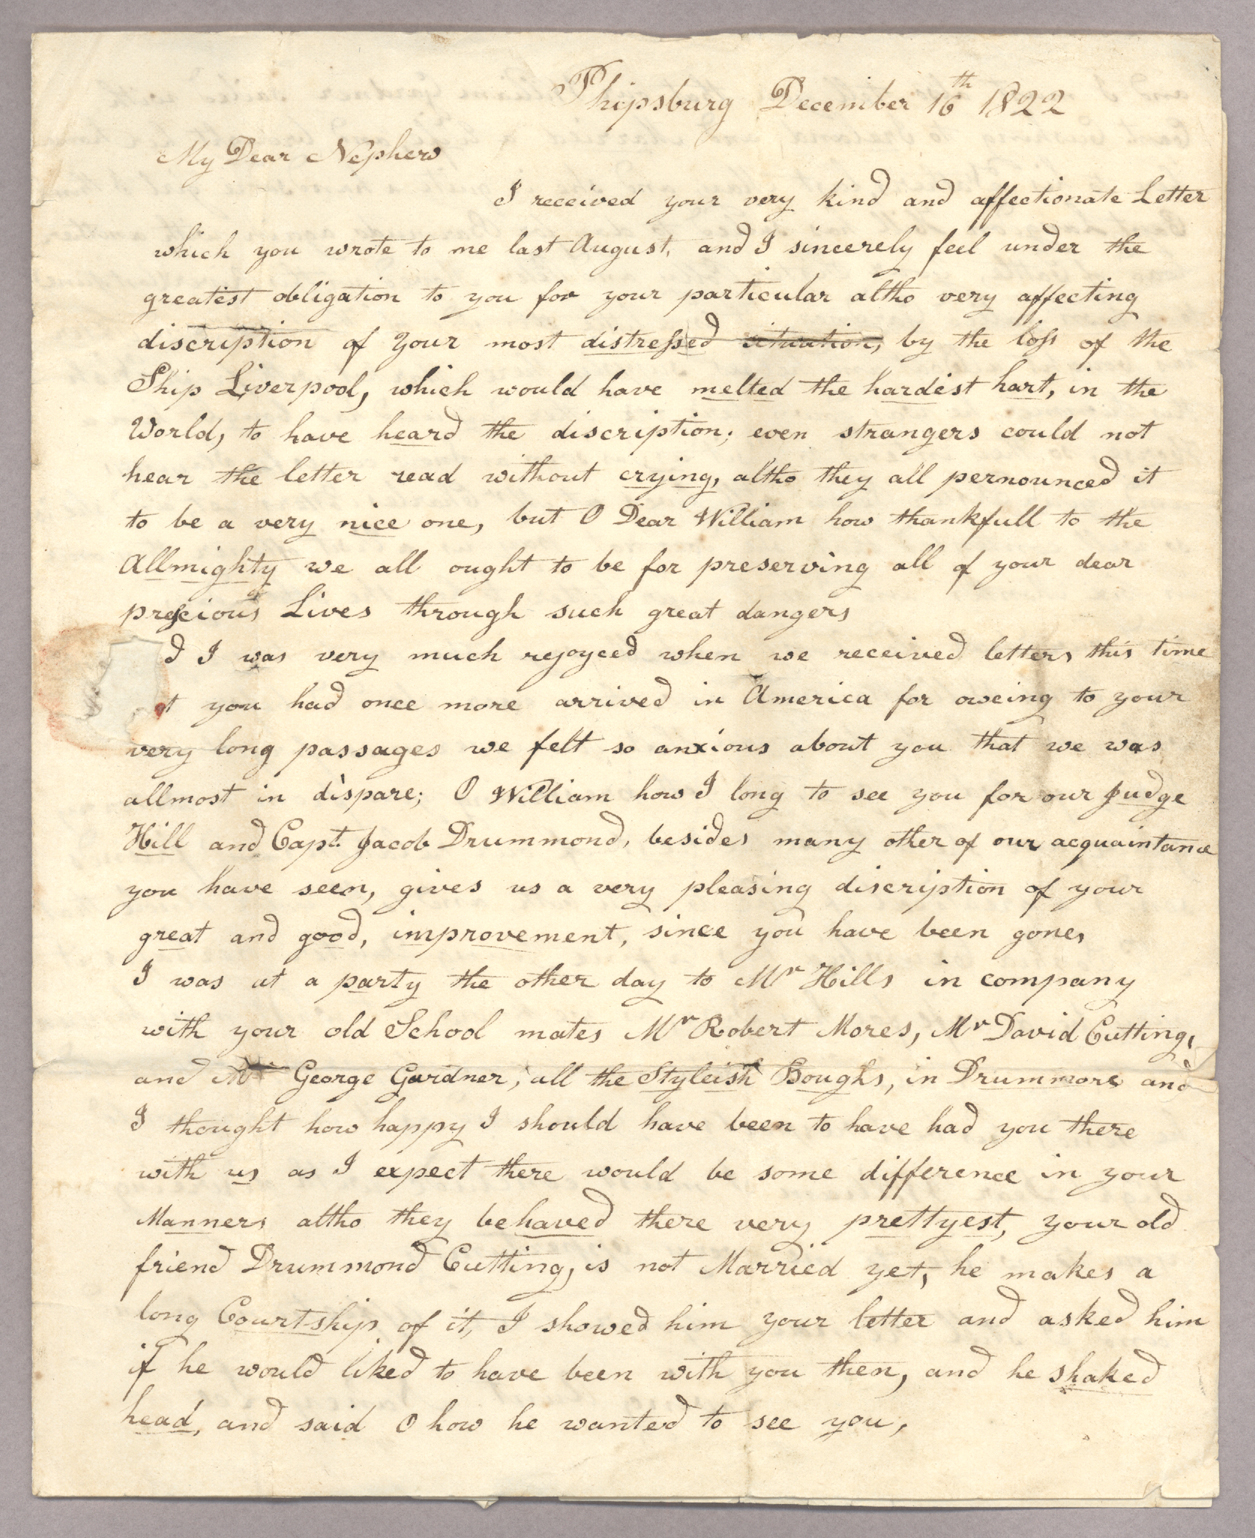 Phipsburg December 16th 1822
My Dear Nephew
I received your very kind and affectionate Letter
which you wrote to me last August, and I sincerely feel under the
greatest obligation to you for your particular altho very affecting
discription of your most distressed situation, by the loss of the
Ship Liverpool, which would have melted the hardest hart, in the
World, to have heard the discription; even strangers could not
hear the letter read without crying, altho they all pernounced it
to be a very nice one, but O Dear William how thankfull to the
Allmighty we all ought to be for preserving all of your dear
precious Lives through such great dangers
d I was very much rejoyced when we received letters this time
t you had once more arrived in America for oweing to your
very long passages we felt so anxious about you that we was
allmost in dispare; O William how I long to see you for our Judge
Hill and Capt. Jacob Drummond, besides many other of our acquaintance
you have seen, gives us a very pleasing discription of your
great and good, improvement, since you have been gone,
I was at a party the other day to Mr Hills in company
with your old School mates Mr Robert Mores, Mr David Cutting,
and Mr George Gardner, all the Styleish Boughs, in Drummore and
I thought how happy I should have been to have had you there
with us as I expect there would be some difference in your
Manners altho they behaved there very prettyest, your old
friend Drummond Cutting, is not Married yet, he makes a
long Courtship of it, I showed him your letter and asked him
if he would liked to have been with you then, and he shaked
head, and said O how he wanted to see you,